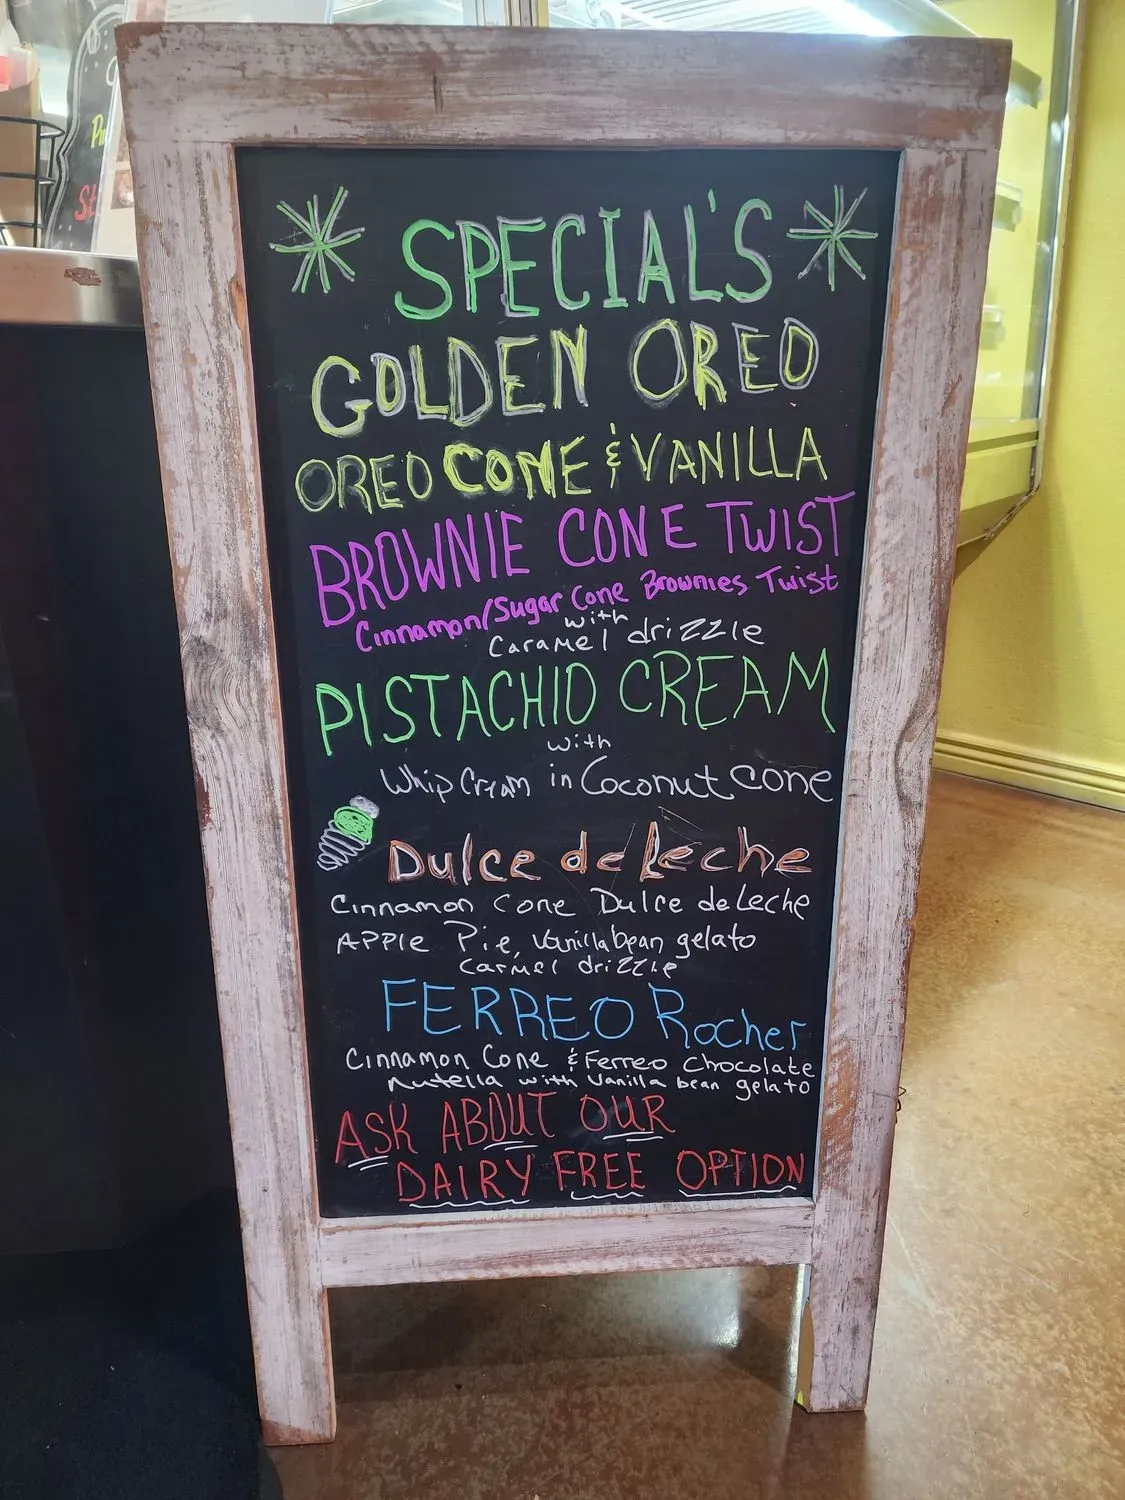 SPECIAL'S
GOLDEN OREO
OREO CONE & VANILLA
BROWNIE CONE TWIST
Cinnamon/Sugar Cone Brownies Twist
with
Caramel drizzle
PISTACHIO CREAM
with
Whip Cream in Coconut Cone
Dulce de Leche
Cinnamon Cone Dulce de Leche
Apple Pie, Vanilla bean gelato
Carmel drizzle
FERREO Rocher
Cinnamon Cone & Ferreo Chocolate
Nutella with Vanilla bean gelato
ASK ABOUT OUR
DAIRY FREE OPTION